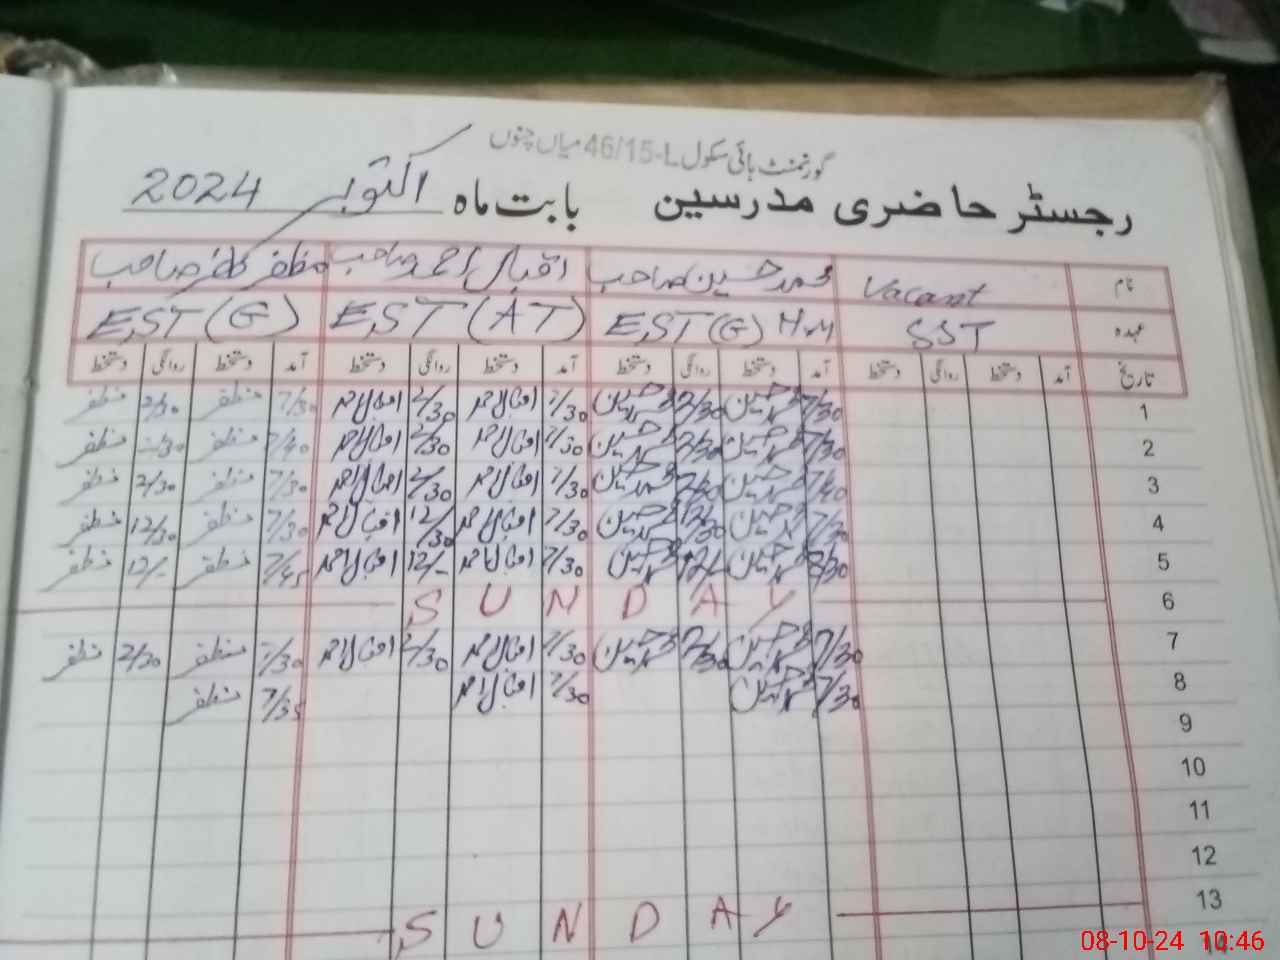 گورنمنٹ ہائی سکول 46/15-L میاں چنوں
رجسٹر حاضری مدرسین بابت ماہ اکتوبر 2024
نام Vacant محمد حسین صاحب اقبال احمد صاحب مظفر صاحب
عہدہ SST EST(G) H.M EST(AT) EST(G)
تاریخ آمد دستخط روانگی دستخط آمد دستخط روانگی دستخط آمد دستخط روانگی دستخط آمد دستخط روانگی دستخط
1 7/30 محمد حسین 2/30 محمد حسین 7/30 اقبال احمد 2/30 اقبال احمد 7/30 مظفر 2/30 مظفر
2 7/30 محمد حسین 2/30 محمد حسین 7/30 اقبال احمد 2/30 اقبال احمد 7/40 مظفر مظفر
3 7/40 محمد حسین 2/30 محمد حسین 7/30 اقبال احمد 2/30 اقبال احمد 7/30 مظفر 2/30 مظفر
4 7/30 محمد حسین 12/30 محمد حسین 7/30 اقبال احمد 12/30 اقبال احمد 7/30 مظفر 12/30 مظفر
5 محمد حسین 12/- محمد حسین 7/30 اقبال احمد 12/- اقبال احمد 7/45 مظفر 12/- مظفر
6 SUNDAY
7 7/30 محمد حسین 2/30 محمد حسین 7/30 اقبال احمد 2/30 اقبال احمد 7/30 مظفر 2/30 مظفر
8 7/30 محمد حسین 7/30 اقبال احمد 7/35 مظفر
9
10
11
12
13 SUNDAY
14
08-10-24 10:46